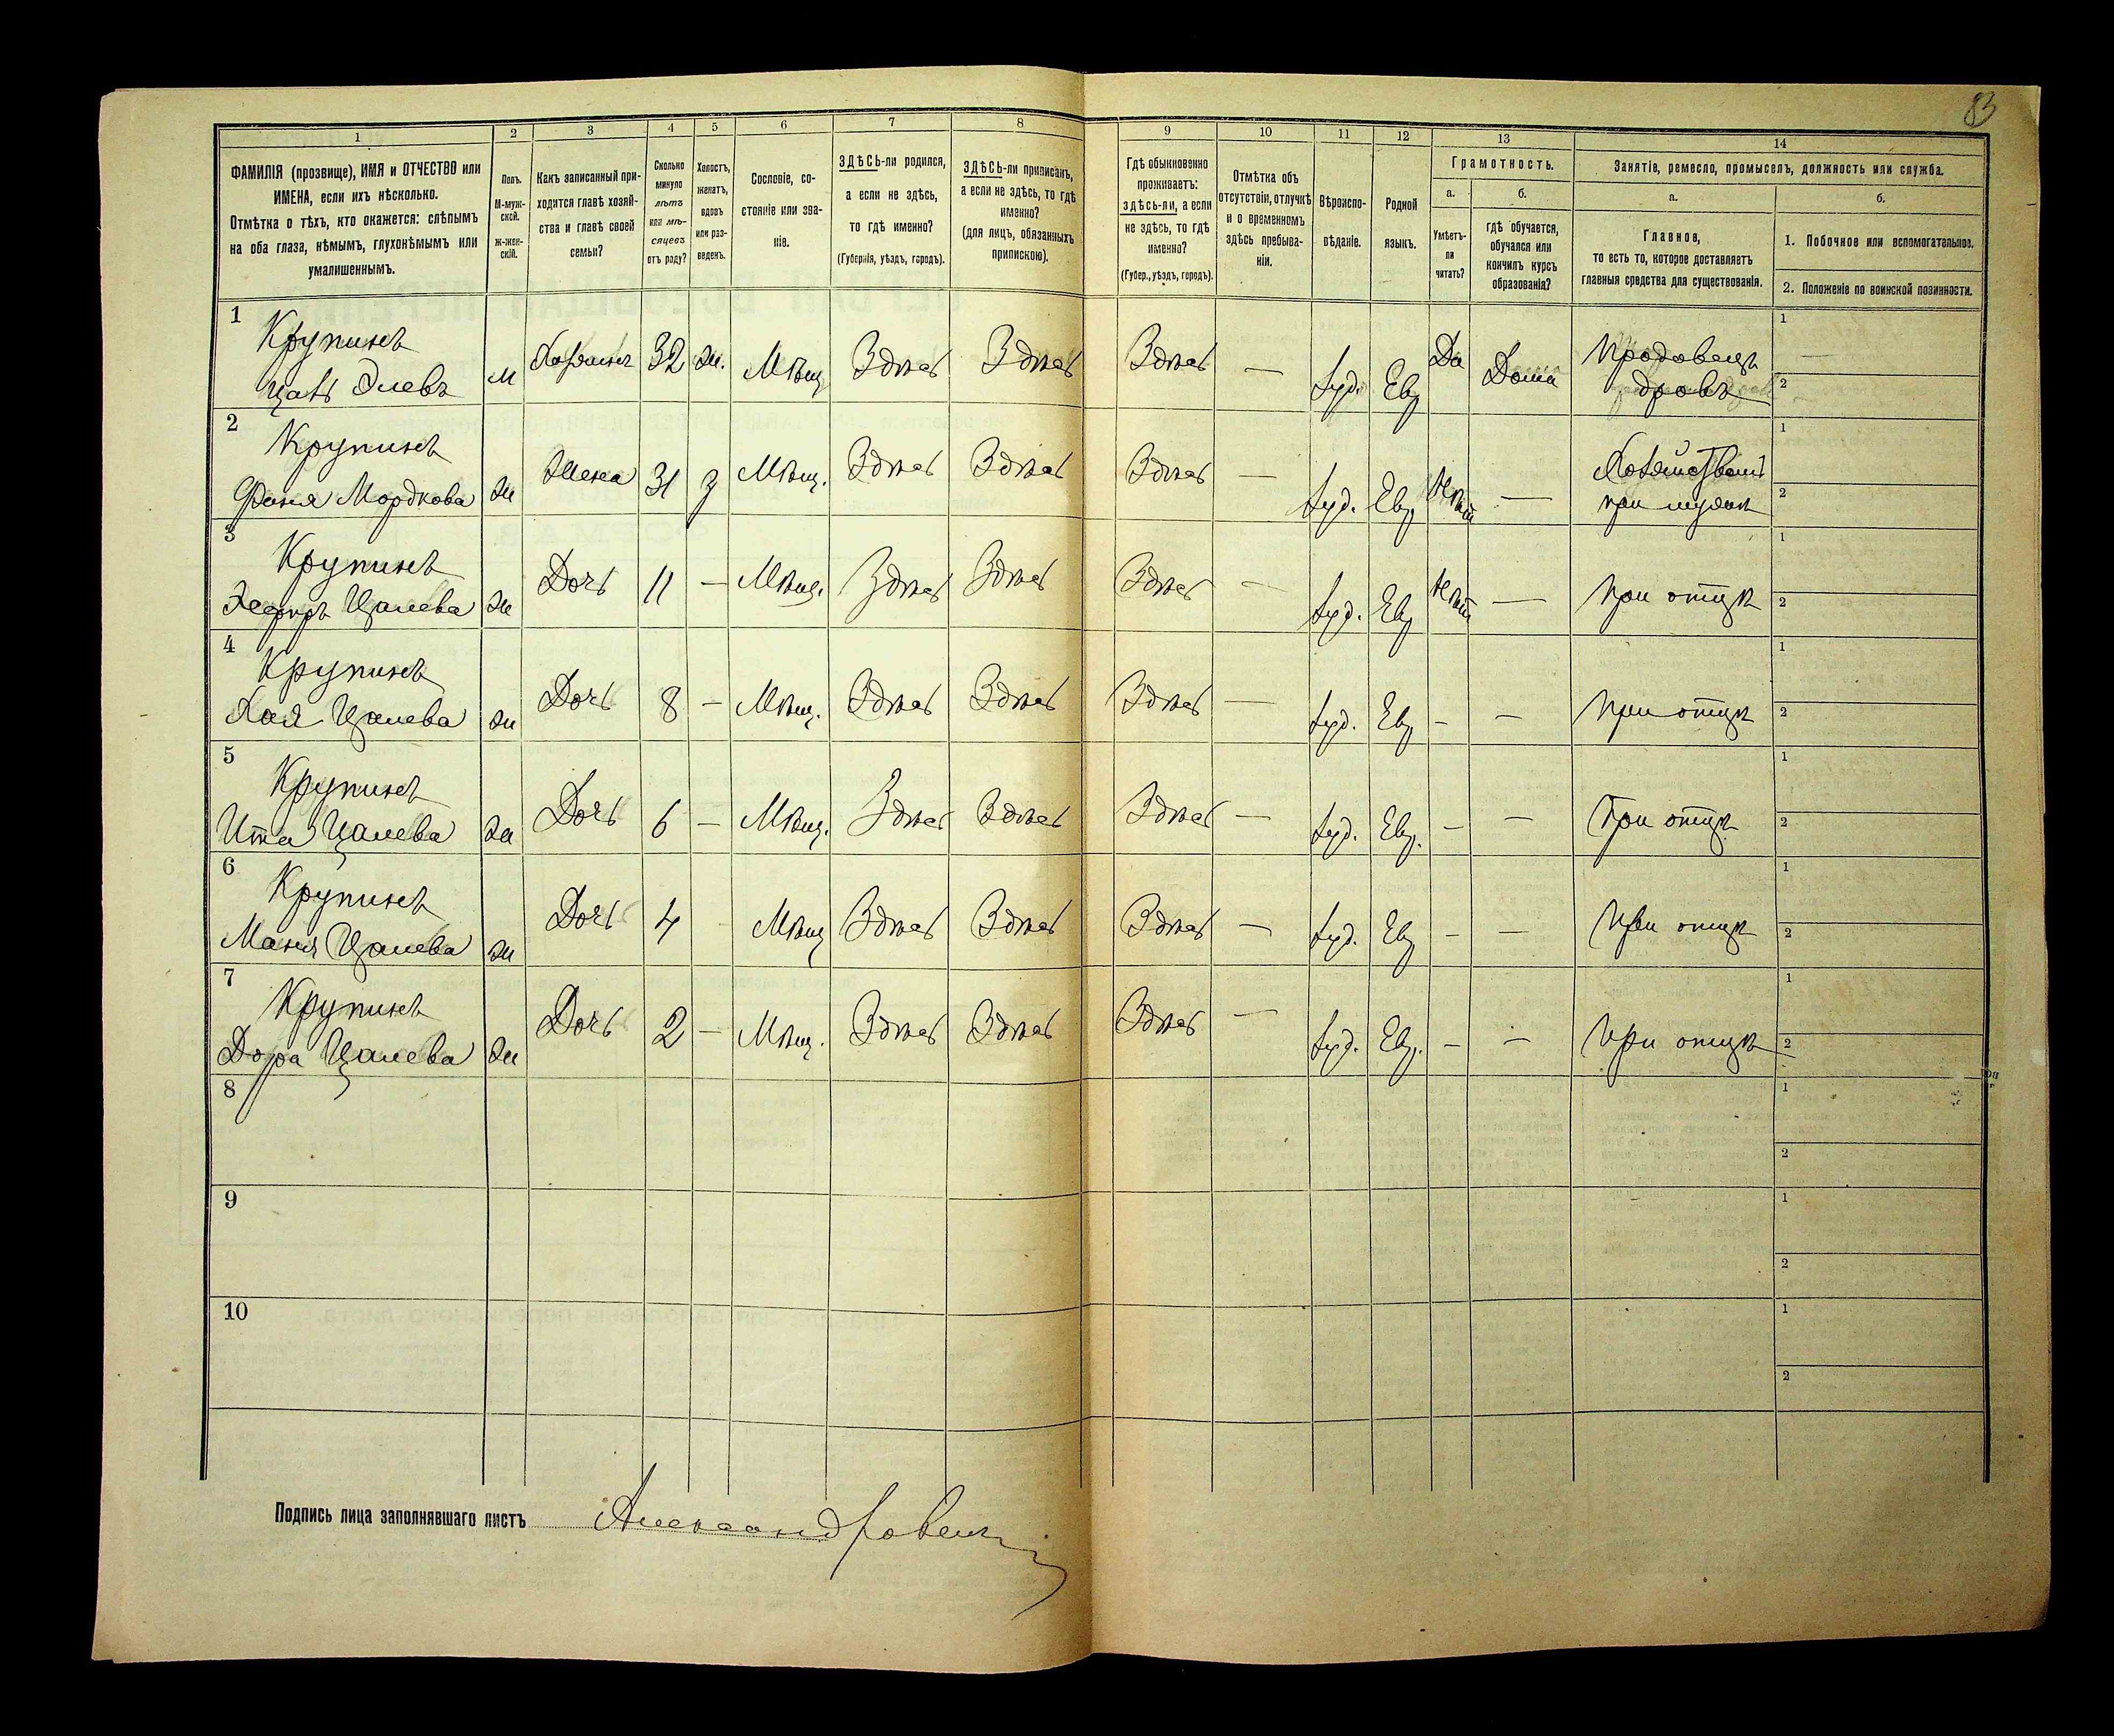 83
1
2
3
4
5
6
7
8
9
10
11
12
13
14
ФАМИЛІЯ (прозвище), ИМЯ и ОТЧЕСТВО или
ИМЕНА, если ихъ нѣсколько.
Отмѣтка о тѣхъ, кто окажется: слѣпымъ
на оба глаза, нѣмымъ, глухонѣмымъ или
умалишеннымъ.
Полъ.
М-муж-
ской.
ж-жен-
скій.
Какъ записанный при-
ходится главѣ хозяй-
ства и главѣ своей
семьи?
Сколько
минуло
лѣтъ
или мѣ-
сяцевъ
отъ роду?
Холостъ,
женатъ,
вдовъ
или раз-
веденъ.
Сословіе, со-
стояніе или зва-
ніе.
ЗДѢСЬ-ли родился,
а если не здѣсь,
то гдѣ именно?
(Губернія, уѣздъ, городъ).
ЗДѢСЬ-ли приписанъ,
а если не здѣсь, то гдѣ
именно?
(для лицъ, обязанныхъ
припискою).
Гдѣ обыкновенно
проживаетъ:
здѣсь-ли, а если
не здѣсь, то гдѣ
именно?
(Губер., уѣздъ, городъ).
Отмѣтка объ
отсутствіи, отлучкѣ
и о временномъ
здѣсь пребыва-
ніи.
Вѣроиспо-
вѣданіе.
Родной
языкъ.
Грамотность.
а.
Умѣетъ-
ли
читать?
б.
гдѣ обучается,
обучался или
кончилъ курсъ
образованія?
Занятіе, ремесло, промыселъ, должность или служба.
а.
Главное,
то есть то, которое доставляетъ
главныя средства для существованія.
б.
1. Побочное или вспомогательное.
2. Положеніе по воинской повинности.
1
Крупинъ
м
Хозяинъ
32
ж.
Мѣщ
Здѣсь
Здѣсь
Здѣсь
—
Іуд.
Евр
Да
Дома
Продавецъ
дровъ
1
2
2
Крупинъ
Фаня Мордкова
ж
Жена
31
з
Мѣщ.
Здѣсь
Здѣсь
Здѣсь
—
Іуд.
Евр
Нѣтъ
—
при мужѣ
1
2
3
Крупинъ
Цалева
ж
Дочь
11
—
Мѣщ.
Здѣсь
Здѣсь
Здѣсь
—
Іуд.
Евр
Нѣтъ
—
При отцѣ
1
2
4
Крупинъ
Хая Цалева
ж
Дочь
8
—
Мѣщ.
Здѣсь
Здѣсь
Здѣсь
—
Іуд.
Евр
—
—
При отцѣ
1
2
5
Крупинъ
Ита Цалева
ж
Дочь
6
—
Мѣщ.
Здѣсь
Здѣсь
Здѣсь
—
Іуд.
Евр.
—
—
При отцѣ
1
2
6
Крупинъ
Маня Цалева
ж
Дочь
4
Мѣщ
Здѣсь
Здѣсь
Здѣсь
—
Іуд.
Евр
—
—
При отцѣ
1
2
7
Крупинъ
Дора Цалева
ж
Дочь
2
—
Мѣщ.
Здѣсь
Здѣсь
Здѣсь
—
Іуд.
Евр.
—
—
При отцѣ
1
2
8
1
2
9
1
2
10
1
2
Подпись лица заполнявшаго листъ